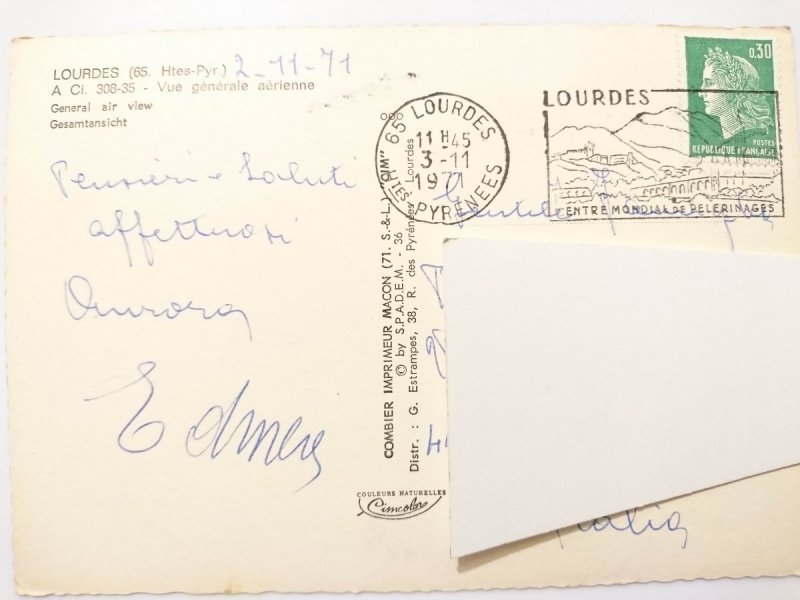 LOURDES (65. Htes-Pyr.) 2-11-71
A Ci. 308-35 - Vue générale aérienne
General air view
Gesamtansicht
Pensieri e Saluti
affettuosi
Aurora
COMBIER IMPRIMEUR MACON (71. S.-&-L.) "CIM"
© by S.P.A.D.E.M. - 36
Distr. : G. Estrampes, 38, R. des Pyrénées, Lourdes
COULEURS NATURELLES
Cimcolor
65 LOURDES
11 H 45
3-11
1971
Htes PYRENEES
LOURDES
CENTRE MONDIAL DE PELERINAGES
0,30
POSTES
REPUBLIQUE FRANÇAISE
Gentile
Italia